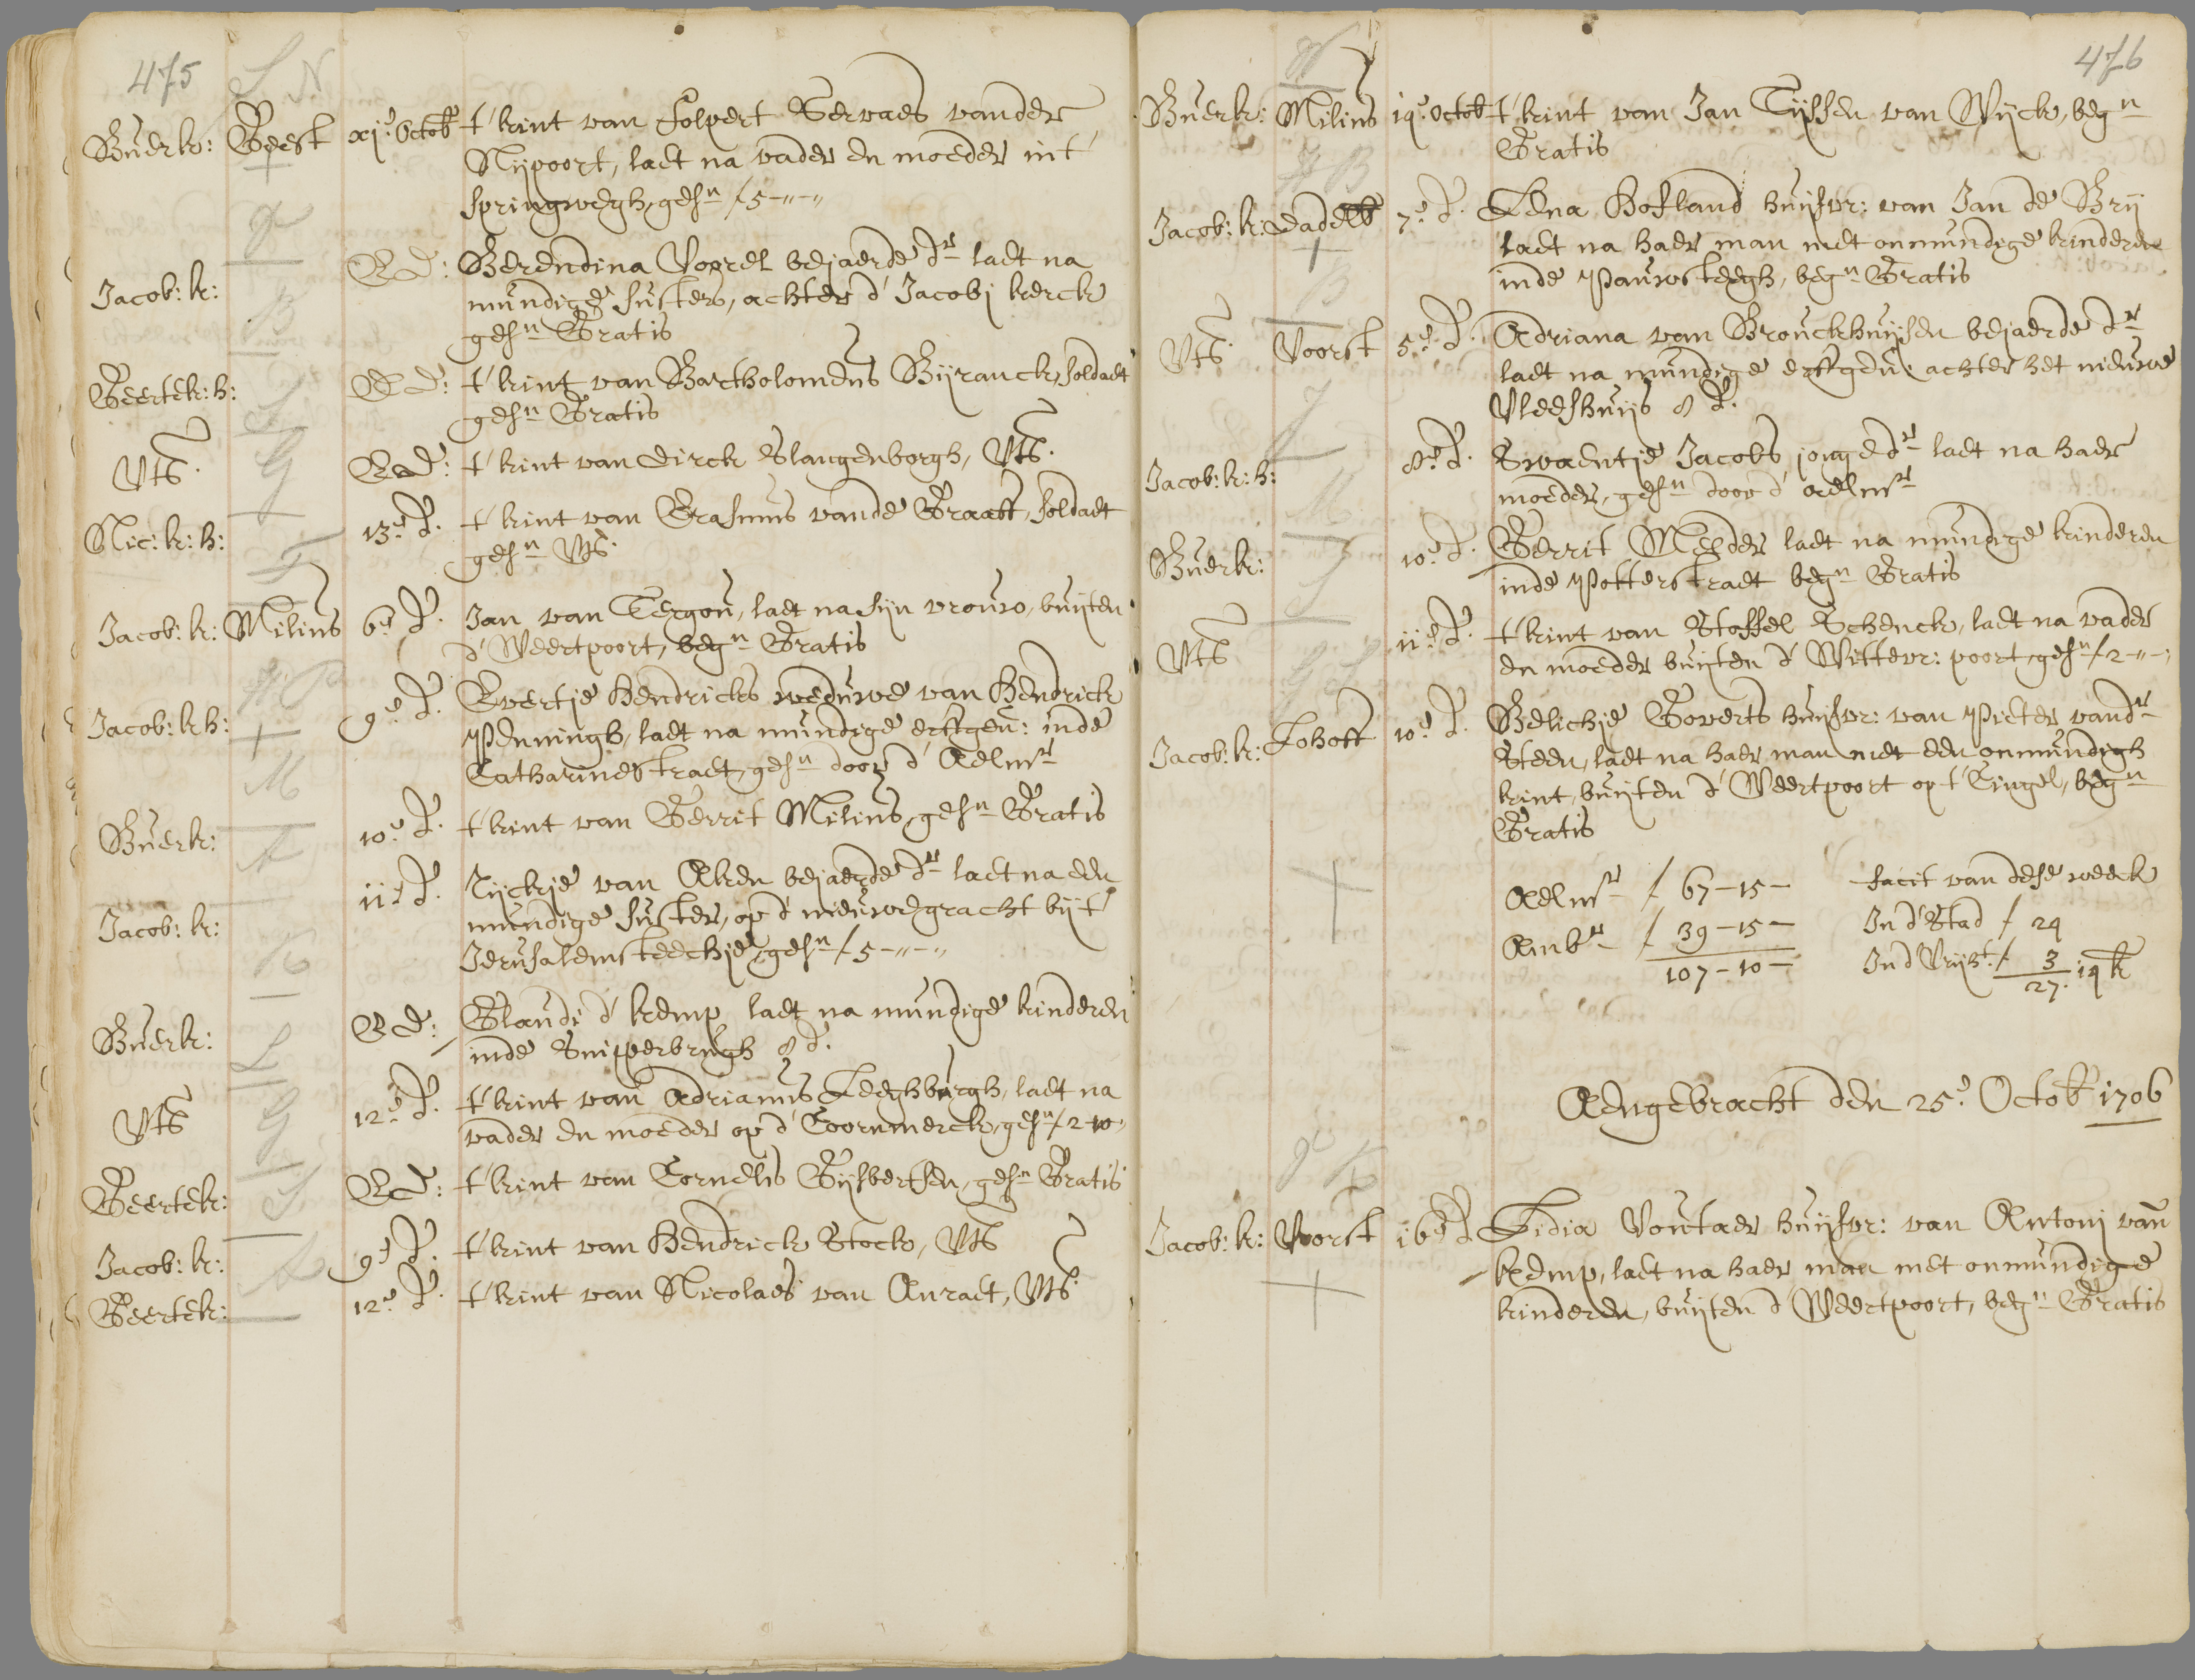 475
S N
Buerk: Geest xj.e Octob.r t' kint van Folpert Servaes vander
Nijpoort, laet na vader en moeder int
springwegh, ges.n ƒ 5-"-"
Jacob: k: E.D: Berendina Voorel bejaerde d.r laet na
mundige susters, achter d' Jacobj kerck
ges.n Gratis
Geertek: h: E.D: t' kint van Bartholomeus Bijranck, soldaet
ges.n Gratis
Vts. E.D: t' kint van Dirck Slangenborgh, Vts.
Nic: k: h: 13.e d.o t' kint van Erasmus vande Graaff, soldaet
ges.n Vts.
Jacob: k: Milius 6.e d.o Jan van Tergou, laet na sijn vrouw, buijten
d' Weertpoort, beg.n Gratis
Jacob: k h: 9.e d.o Evertje Hendricks weduwe van Hendrick
Penningh, laet na mundige erffgen: inde
Catharinestraet, ges.n door d' Aelm.r
M
Buerk: 10.e d.o t' kint van Gerrit Milius, ges.n Gratis
A
Jacob: k: 11.e d.o Rijckje van Aken bejaerde d.r laet na een
mundige suster, op d' nieuwegracht bij t'
Jerusalemsteechje, ges.n ƒ 5-"-"
K
Buerk: E D: Glaude d' kemp laet na mundige kinderen
inde Snipperbrugh 8 d.o
L
Vts 12.e d.o t' kint van Adrianus Leeghburgh, laet na
vader en moeder op d' Coornmerck, ges.n ƒ 2-10-
G
Geertek: E D: t' kint van Cornelis Gijsbertsen, ges.n Gratis
S
Jacob: k: 9.e d.o t' kint van Hendrick Stock, Vts
A
Geertek: 12.e d.o t' kint van Nicolaes van Anraet, Vts.
476
W
Buerk: Milius 19.e Octob t' kint van Jan Tijssen van Wijck, beg.n
Gratis
H B
Jacob: k: Dadelb 7.e d.o Lena Hofland huijsvr: van Jan de Brij
laet na haer man met onmundige kinderen
inde Pauwsteegh, beg.n Gratis
B
Vts. Voorst 5.e d.o Adriana van Brouckhuijsen bejaerde d.r
laet na mundige erffgen: achter het nieuwe
Vleeshuijs 8 d.o
J
Jacob: k: h: 8.e d.o Swaentje Jacobs jonge d.r laet na haer
moeder, ges.n door d' aelm.r
M
Buerk: 10.e d.o Gerrit Meeder laet na mundige kinderen
inde Potterstraet beg.n Gratis
S
Vts 11.e d.o t' kint van Stoffel Schenck, laet na vader
en moeder buijten d' Wittevr: poort, ges.n ƒ 2-"-"
G S
Jacob: k: Lohoff 10.e d.o Belichje Goverts huijsvr: van Pieter vand.r
Steen, laet na haer man met een onmundigh
kint, buijten d' Weertpoort op t' Cingel, beg.n
Gratis
Aelm.r ƒ 67-15- facit van dese weeck
Amb.r ƒ 39-15- In d' Stad ƒ 24
107-10- In d' Vrijh.t ƒ 3
27. 19 k
Aengebracht den 25.e Octob.r 1706
K
Jacob: k: Voorst 16.e d.o Lidia Voutaer huijsvr: van Antonj van
kemp, laet na haer man met onmundige
kinderen, buijten d' Weertpoort, beg.n Gratis